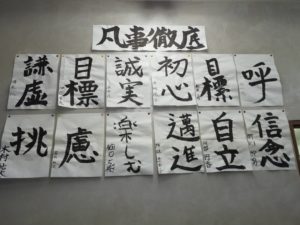 凡事徹底
謙虚
目標
誠実
初心
目標
呼
挑
慮
楽しむ
邁進
自立
信念